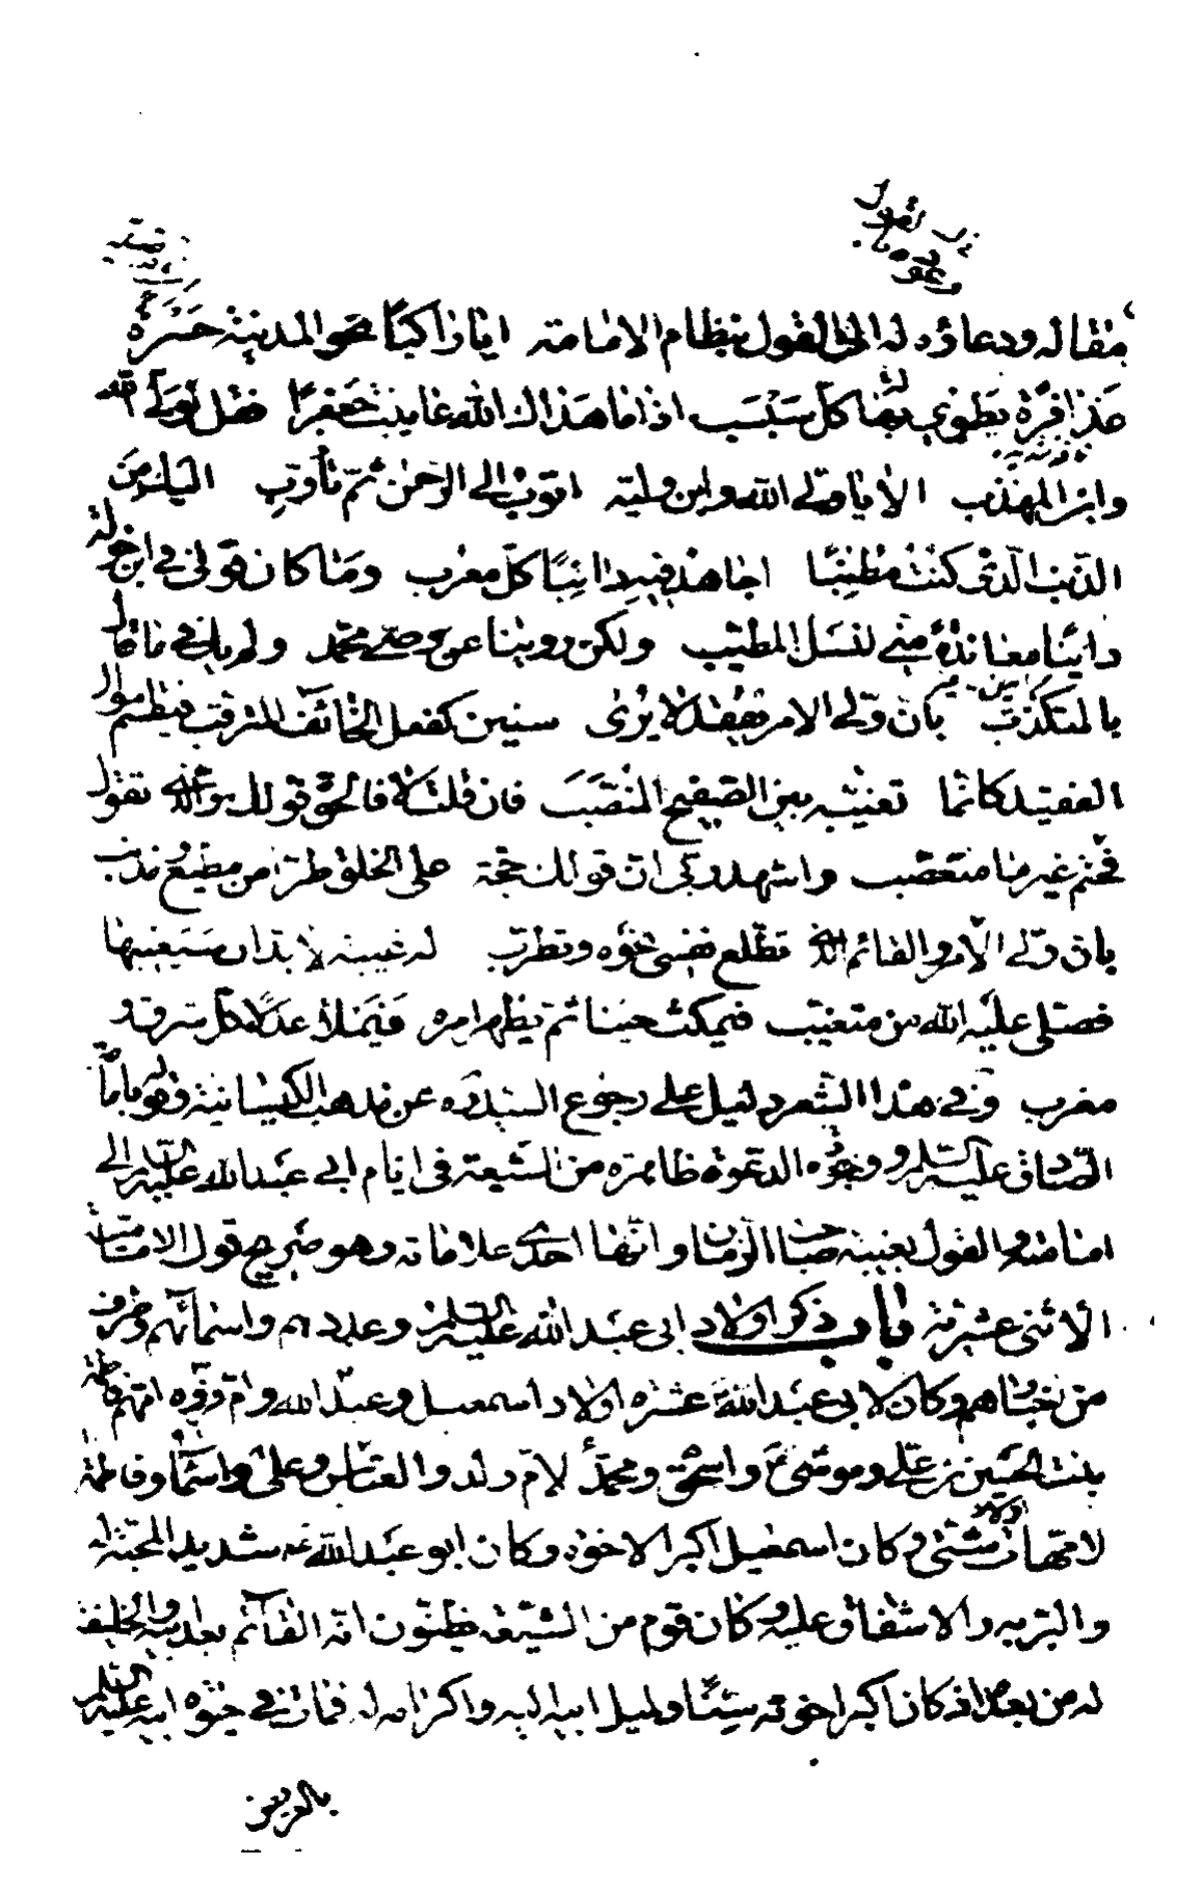 مقاله ودعاؤه له الى القول بنظام الامامة ايا راكبا نحو المدينة جسرة
عذافرة يطوى بها كل سبسب اذا ما هداك الله عاينت جعفرا فقل لولى الله
وابن المهذب الا يا ولى الله وابن وليه اتوب الى الرحمن ثم تأوبى اليك من
الذنب الذى كنت مطنبا اجاهد فيه دائبا كل معرب وما كان قولى فى ابن خولة
دائبا معاندة منى لنسل المطيب ولكن روينا عن وصى محمد ولم يك فى ما قال
بالمتكذب بان ولى الامر يفقد لا يرى سنين كفعل الخائف المترقب فيقسم اموال
الفقيد كانما تغيبه بين الصفيح المنصب فان قلت لا فالحق قولك والذى تقول
فحتم غير ما متعصب واشهد ربى ان قولك حجة على الخلق طرا من مطيع ومذنب
بان ولى الامر والقائم الذى تطلع نفسى نحوه وتطرب له غيبة لا بد ان سيغيبها
فصلى عليه الله من متغيب فيمكث حينا ثم يظهر امره فيملأ عدلا كل شرق و
مغرب وفى هذا الشعر دليل على رجوع السيد ره عن مذهب الكيسانية وقوله بامامة
الصادق عليه السلام ووجود الدعوة ظاهرة من الشيعة فى ايام ابى عبد الله عليه السلام الى
امامته والقول بغيبة صاحب الزمان وانها احدى علاماته وهو صريح قول الامامية
الاثنى عشرية باب ذكر اولاد ابى عبد الله عليه السلام وعددهم واسمائهم وطرف
من اخبارهم وكان لابى عبد الله ع عشرة اولاد اسمعيل وعبد الله وام فروه امهم فاطمة
بنت الحسين بن على وموسى ع واسحق ومحمد لام ولد والعباس وعلى واسماء وفاطمة
لامهات اولاد شتى وكان اسمعيل اكبر الاخوة وكان ابو عبد الله ع شديد المحبة له
والبر به والاشفاق عليه وكان قوم من الشيعة يظنون انه القائم بعد ابيه والخليفة
له من بعده اذ كان اكبر اخوته سنا ولميل ابيه اليه واكرامه له فمات فى حيوه ابيه عليه السلام
بالعريض